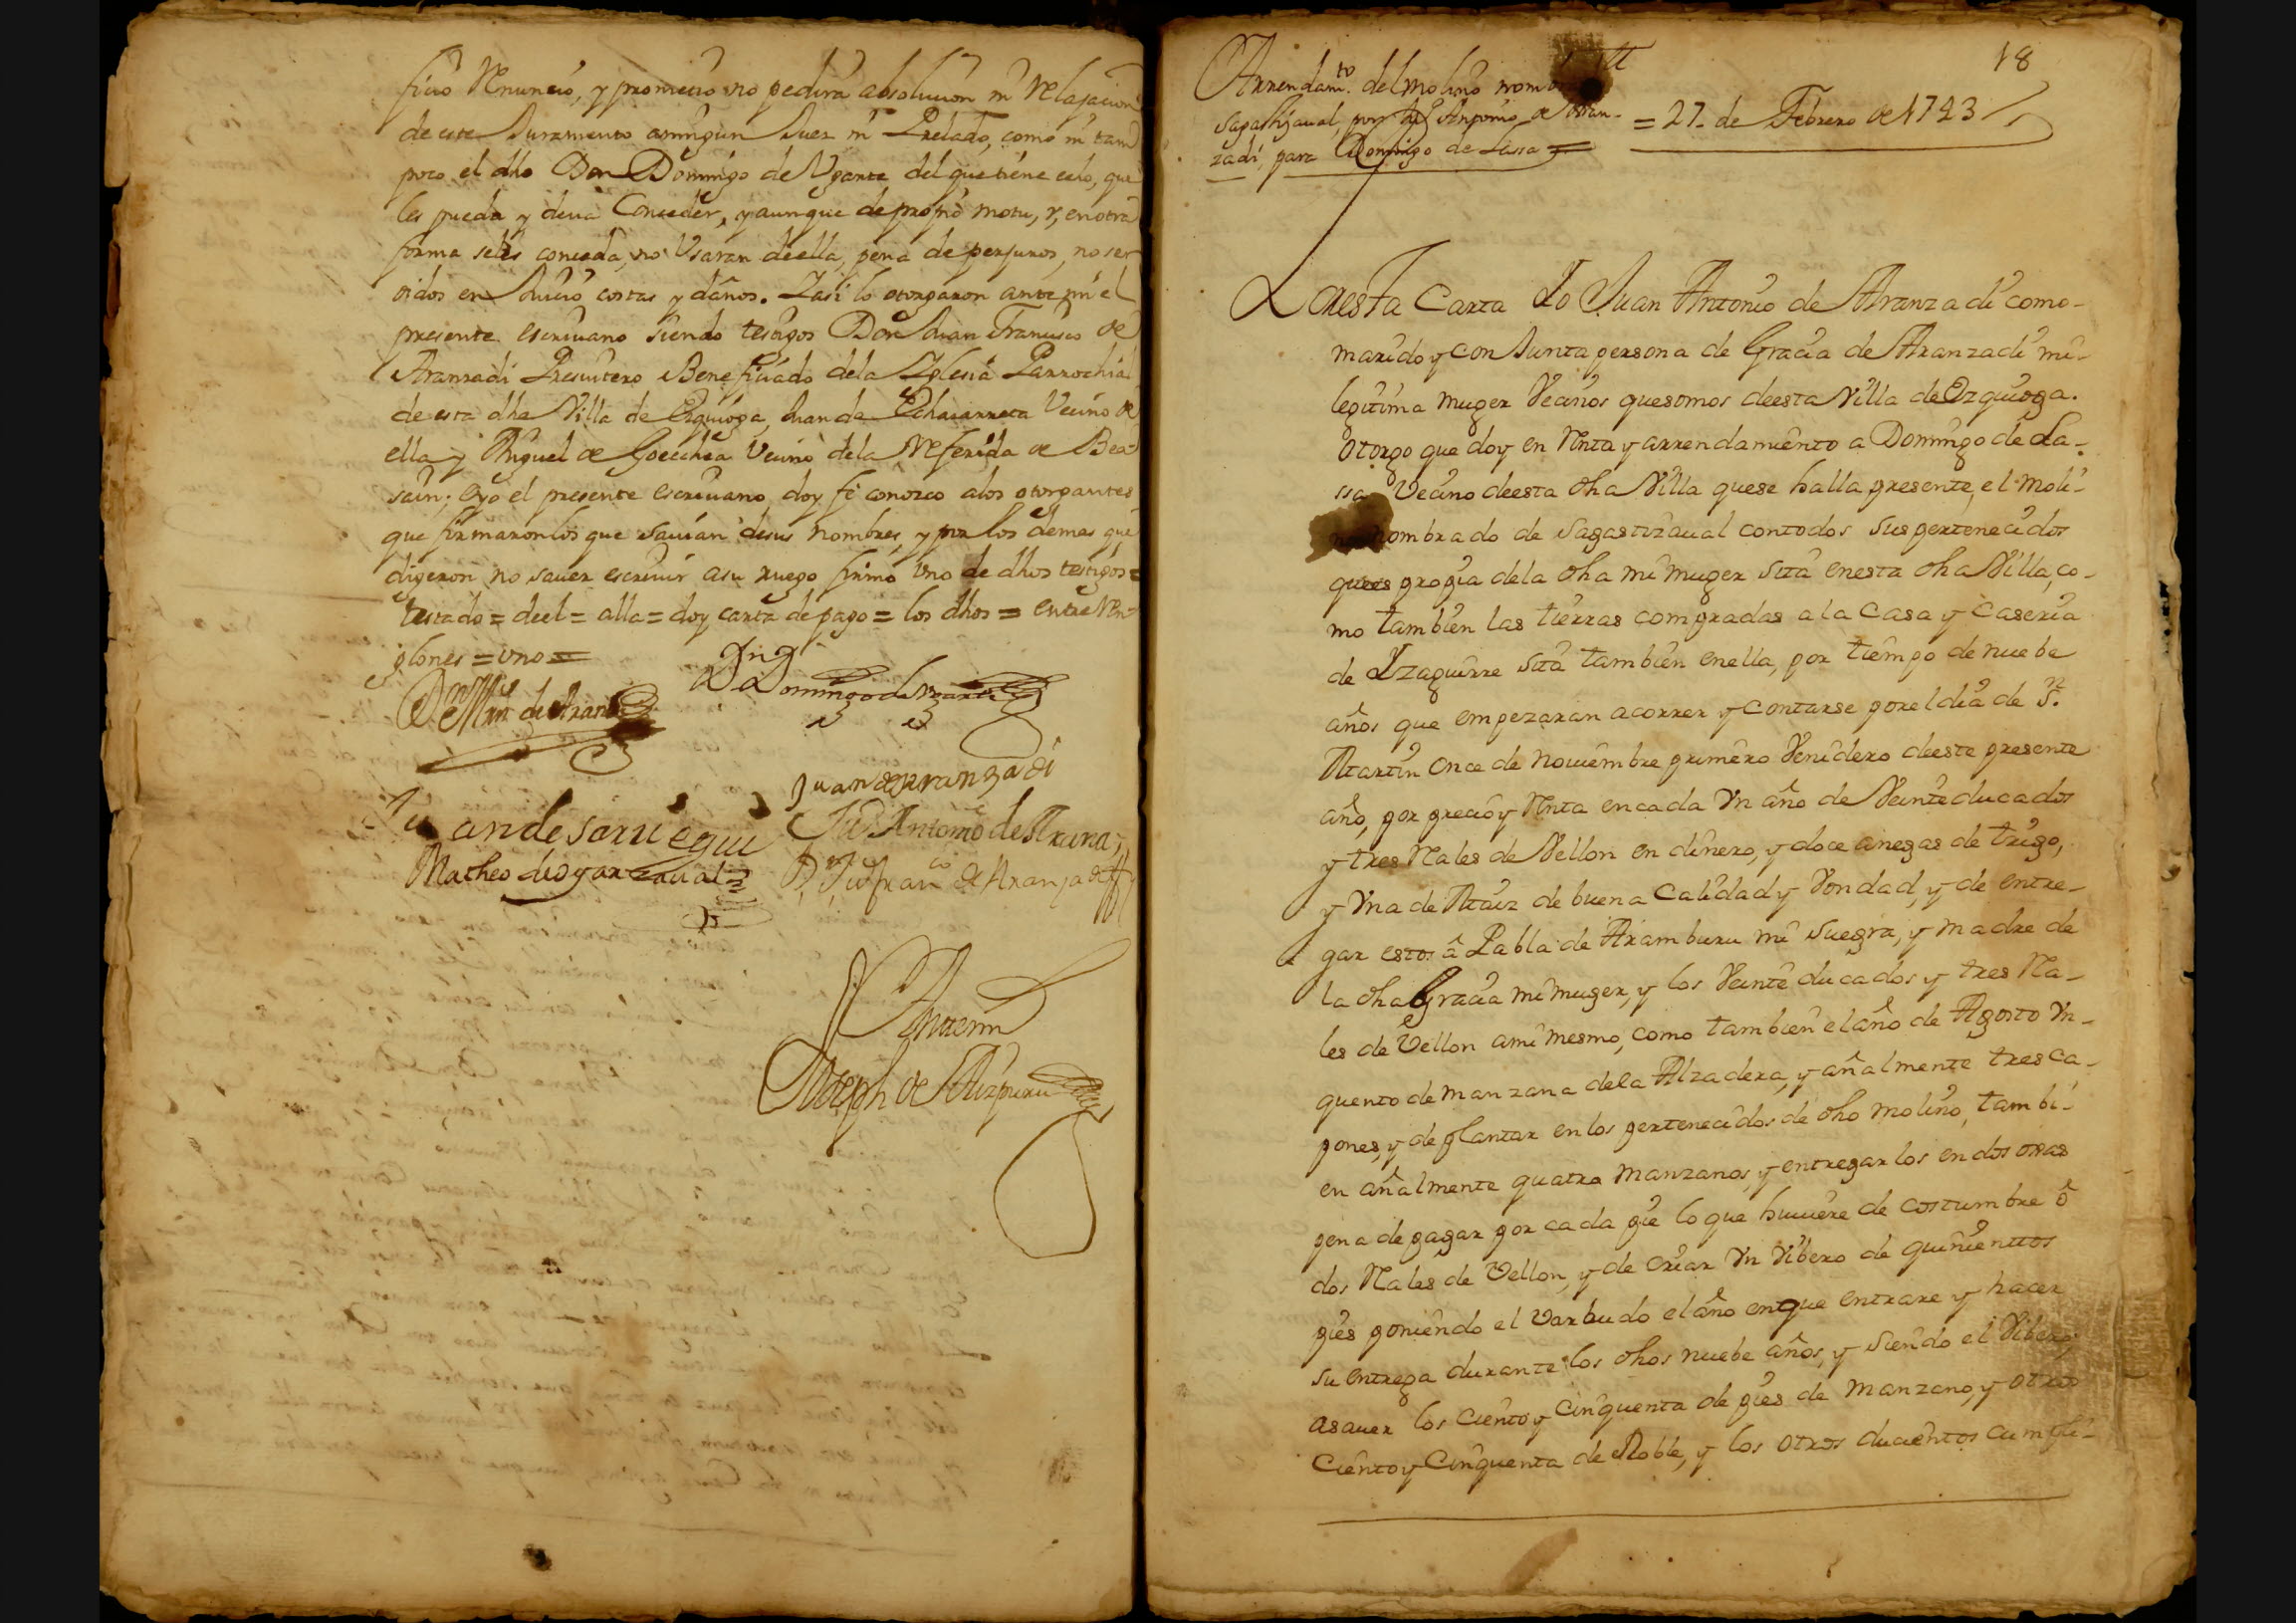 ficio Renuncio, y prometio no pedirà absolucion ni Relajacion
de este Juramento aningun Juez ni Prelado, como ni tam
poco el dho Don Domingo de Ugarte del que tiene echo, que
les pueda y deva Conceder, y aunque de propio motu, y, en otra
forma seles conceda, no Usaran deella, pena de perjuros, no ser
oidos en Juicio costas y daños. I asi lo otorgaron ante mi el
presente escrivano siendo testigos Don Juan Francisco de
Aranzadi Presvitero Beneficiado dela Iglesia Parrochial
de esta dha Villa de Ezquioga, Juan de Echavarreta Vecino de
ella y Miguel de Goecchea Vecino dela Referida de Bea
sain; eyo el presente escrivano doy fe conozco alos otorgantes
que firmaronlos que savian desus nombres, y por los demas que
digeron no saver escrivir asu ruego firmò Uno de dhos testigos =
testado = deel = alla = doy carta de pago = los dhos = entre Ren
glones = uno =
Domingo de Ugarte
Juan de Aranzadi
Juan de sarriegui
Ju.º Antonio de Arana
Matheo de oyarzaval
D. Ju. fran.co de Aranzadi
Antemi
Joseph de Aizpuru
18
Arrendam.to del molino nomb
Sagastizaval, por Ju.n Antonio de Aran-
zadi, para Domingo de Lassa =
= 27. de Febrero de 1743
Por esta Carta Yo Juan Antonio de Aranzadi como-
marido y conJunta persona de Gracia de Aranzadi mi-
legitima muger Vecinos quesomos deesta Villa de Ezquioga.
otorgo que doy en Renta y arrendamiento a Domingo de La-
ssa Vecino deesta dha Villa quese halla presente, el moli-
no nombrado de Sagastizaval contodos sus pertenecidos
que es propia dela dha mi muger sita enesta dha Villa, co-
mo tambien las tierras compradas ala Casa y Caseria
de Yzaguirre sita tambien enella, por tiempo de nuebe
años que empezaran acorrer y contarse porel dia de S.n
Martin once de noviembre primero Venidero deeste presente
año, por precio y Renta encada Un año de Veinte ducados
y tres Reales de Vellon en dinero, y doce anegas de trigo,
y Una de Maiz de buena Calidad y Vondad, y de entre-
gar estos â Pabla de Aramburu mi suegra, y madre de
la dha Gracia mi muger, y los Veinte ducados y tres Rea-
les de Vellon ami mesmo, como tambien el año de Agosto Un-
quento de manzana dela Alzadera, y añalmente tres ca-
pones, y de plantar en los pertenecidos de dho molino, tambi-
en añalmente quatro manzanos, y entregarlos en dos ojas
pena de pagar por cada pie lo que huviere de costumbre ô
dos Reales de Vellon, y de criar Un Vibero de quinientos
pies poniendo el Varbudo el año enque entrare y hacer
su entrega durante los dhos nuebe años, y siendo el Vibero,
asaver los ciento y cinquenta de pies de manzano, y otros
ciento y Cinquenta de Roble, y los otros ducientos cumpli-